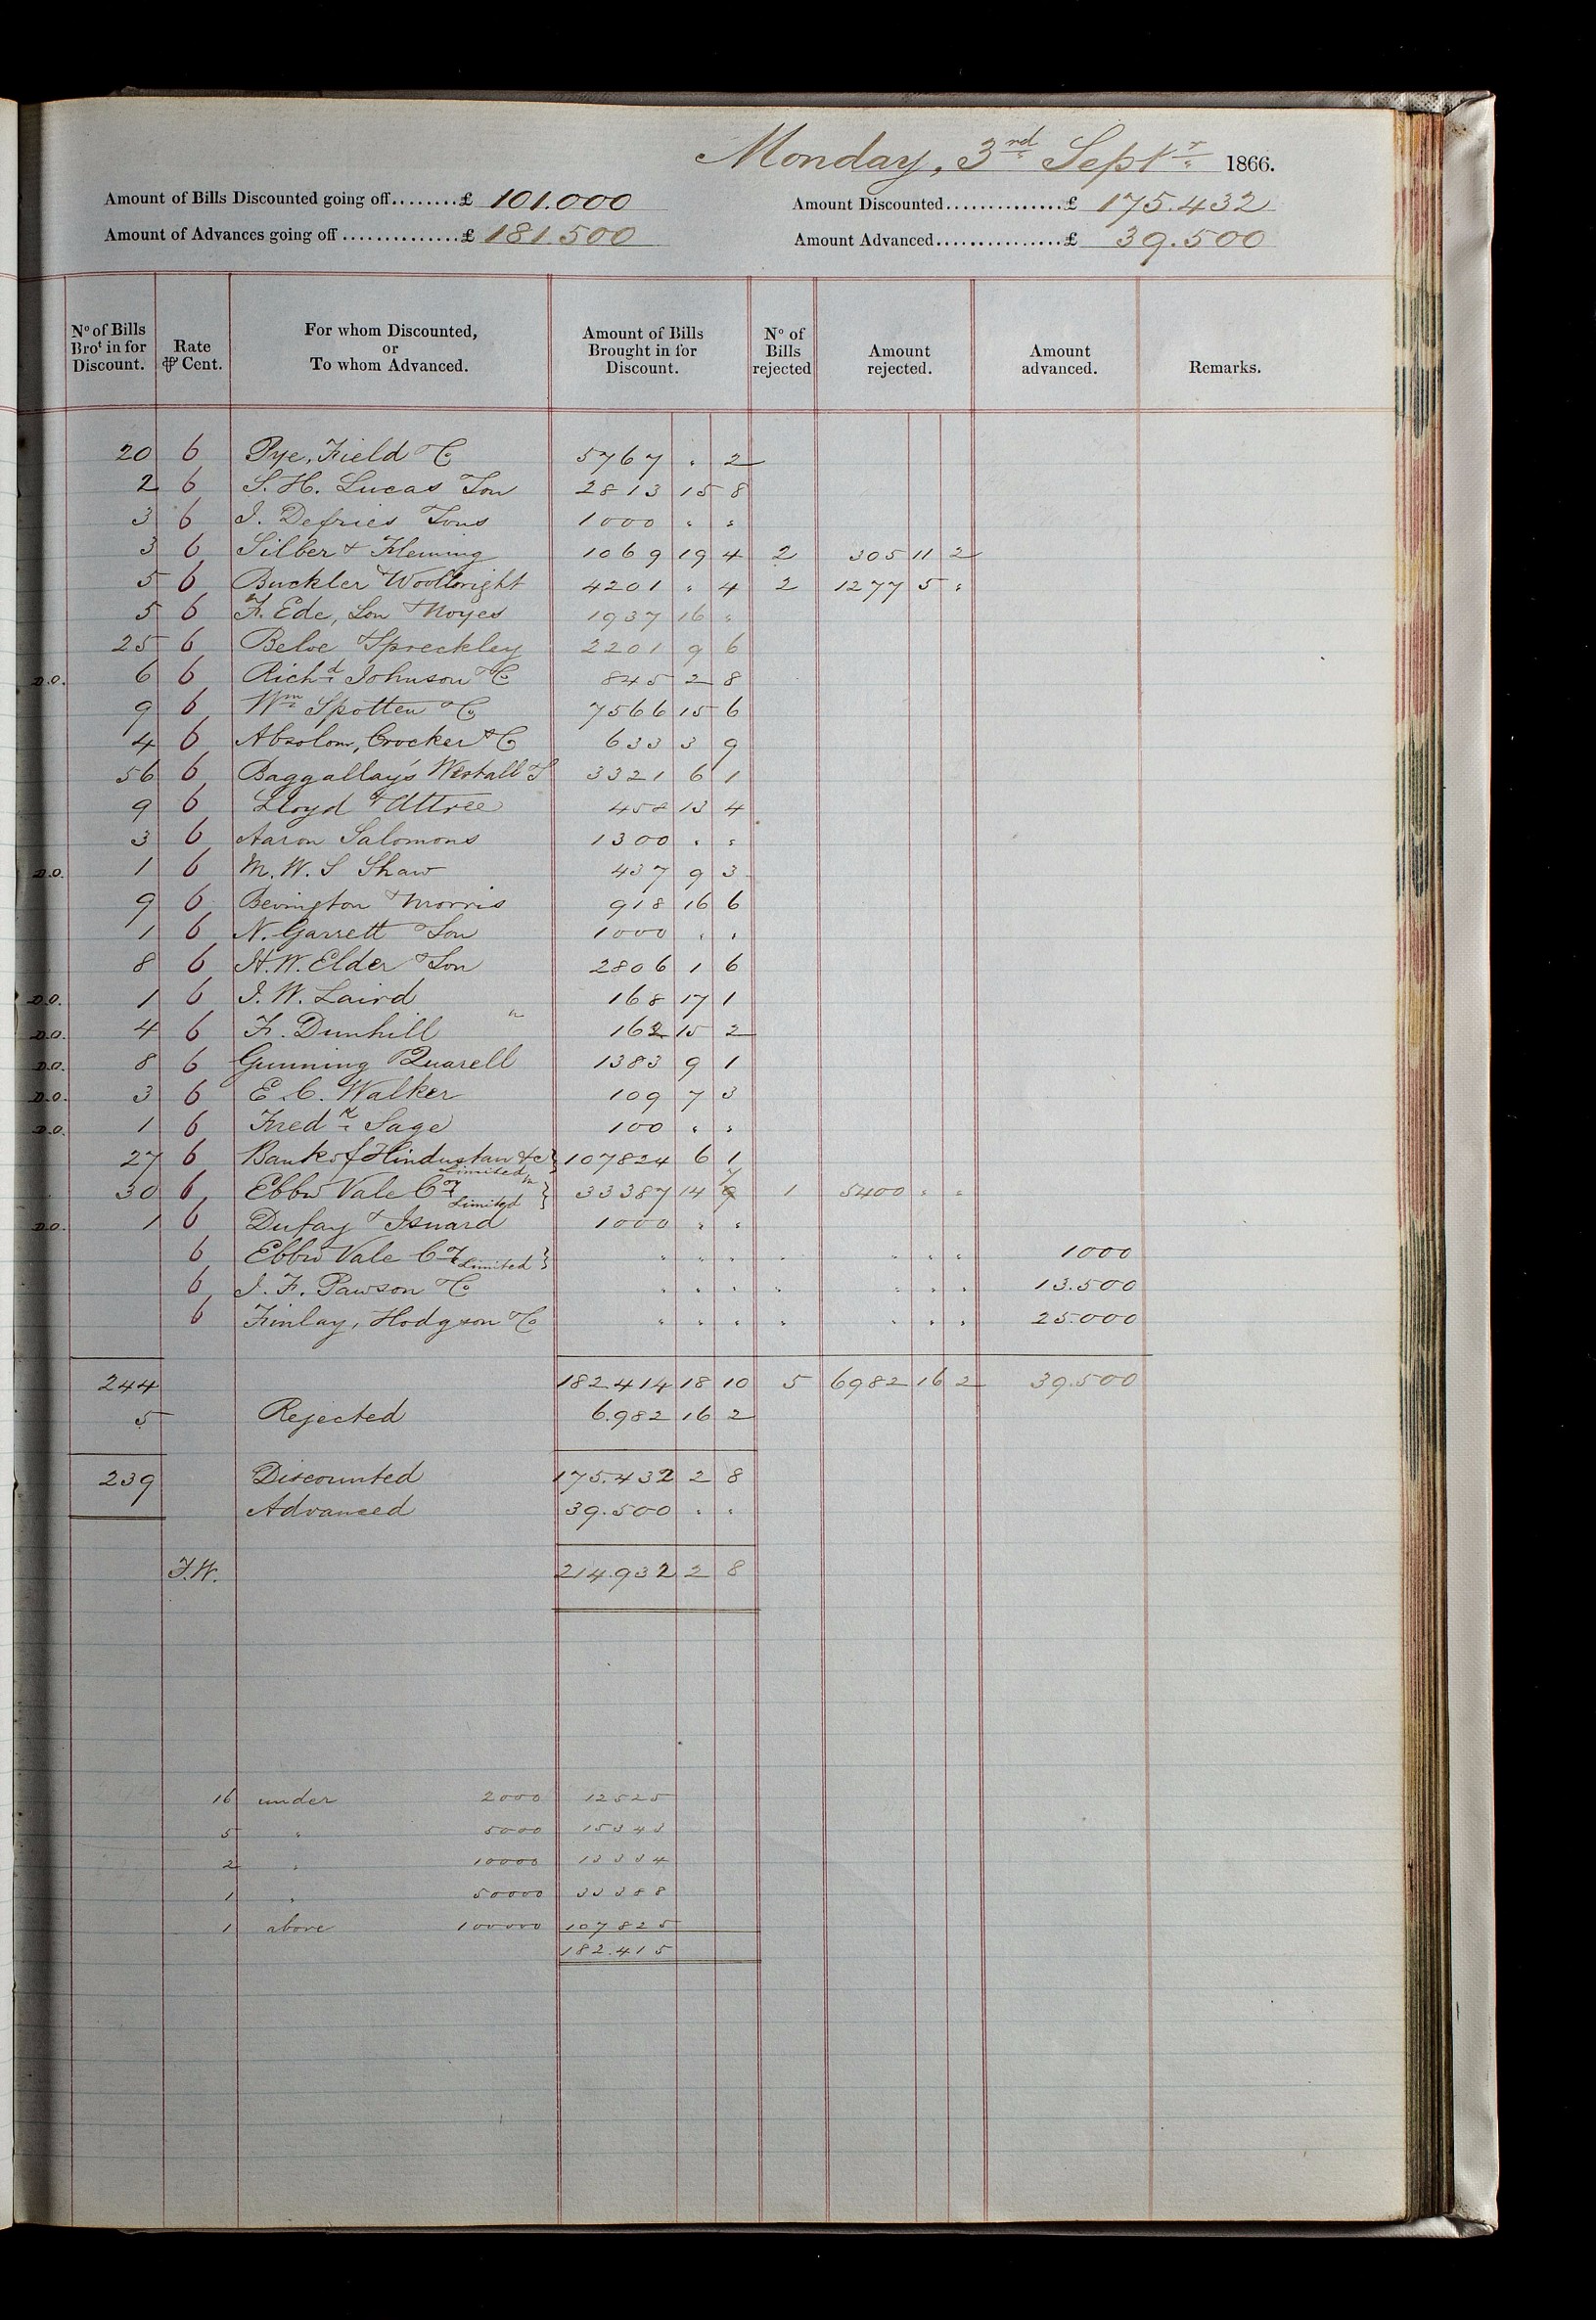 Monday, 3rd Septr 1866.
Amount of Bills Discounted going off........£ 101.000 Amount Discounted..............£ 175.432
Amount of Advances going off..............£ 181.500 Amount Advanced...............£ 39.500
No of Bills Brot in for Discount. Rate ⅌ Cent. For whom Discounted, or To whom Advanced. Amount of Bills Brought in for Discount. No of Bills rejected Amount rejected. Amount advanced. Remarks.
20 6 Pye, Field & Co 5767 " 2
2 6 S. H. Lucas & Son 2813 15 8
3 6 J. Defries & Sons 1000 " "
3 6 Silber & Fleming 1069 19 4 2 305 11 2
5 6 Buckler & Woollwright 4201 " 4 2 1277 5 "
5 6 F. Ede, Son & Noyes 1937 16 "
25 6 Beloe & Spreckley 2201 9 6
D.O. 6 6 Richd Johnson & Co 845 2 8
9 6 Wm Spotten & Co 7566 15 6
4 6 Absolom, Crocker & C 633 3 9
56 6 Baggallay's Westall & S 3321 6 1
9 6 Lloyd & Attree 458 13 4
3 6 Aaron Salomons 1300 " "
D.O. 1 6 M. W. S Shaw 437 9 3
9 6 Bevington & Morris 918 16 6
1 6 N. Garrett & Son 1000 " "
8 6 H. W. Elder & Son 2806 1 6
D.O. 1 6 J. W. Laird 168 17 1
D.O. 4 6 F. Dunhill 162 15 2
D.O. 8 6 Gunning & Quarell 1383 9 1
D.O. 3 6 E. C. Walker 109 7 3
D.O. 1 6 Fredk Sage 100 " "
27 6 Bank of Hindustan &c Limited } 107824 6 1
30 6 Ebbw Vale Coy Limited } 33387 14 7 1 5400 " "
D.O. 1 6 Dufay & Isnard 1000 " "
6 Ebbw Vale Coy Limited } " " " " " " " 1000
6 J. F. Pawson & Co " " " " " " " 13.500
6 Finlay, Hodgson & Co " " " " " " " 25.000
244 182.414 18 10 5 6982 16 2 39.500
5 Rejected 6.982 16 2
239 Discounted 175.432 2 8
Advanced 39.500 " "
F.W. 214.932 2 8
16 under 2000 12525
5 " 5000 15343
2 " 10000 13334
1 " 50000 33388
1 above 100000 107825
182.415